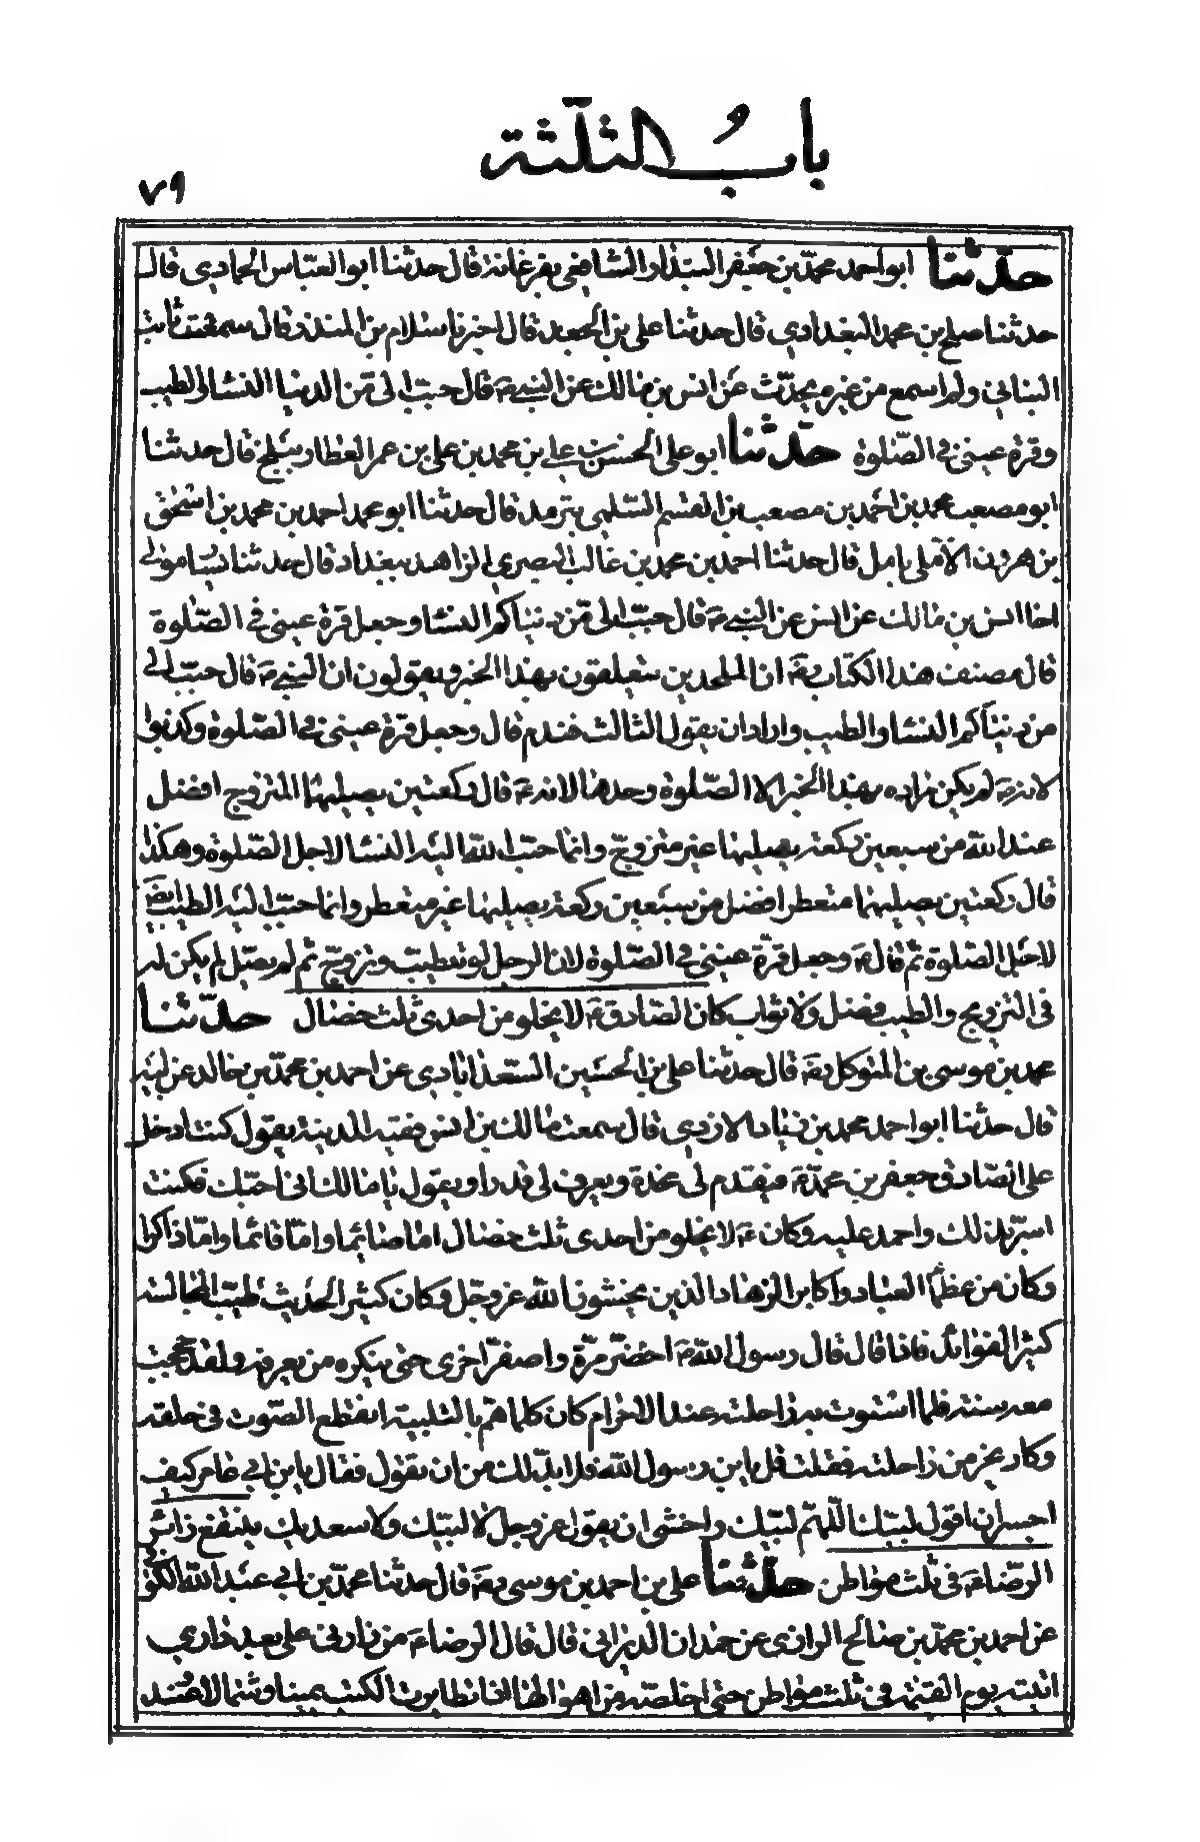 باب الثلثة
٧٩
حدثنا ابو احمد محمد بن جعفر البندار الشافعي بفرغانة قال حدثنا ابو العباس الحمادي قال
حدثنا صالح بن محمد البغدادي قال حدثنا علي بن الجعد قال اخبرنا سلام بن المنذر قال سمعت ثابت
البناني ولم اسمع من غيره يحدث عن انس بن مالك عن النبي ص قال حبب الى من الدنيا النساء والطيب
وقرة عيني في الصلوة حدثنا ابو علي الحسن بن علي بن محمد بن علي بن عمر العطار ببلخ قال حدثنا
ابو مصعب محمد بن احمد بن مصعب بن القسم السلمي بترمد قال حدثنا ابو محمد احمد بن محمد بن اسحق
بن هرون الآملي بامل قال حدثنا احمد بن محمد بن غالب البصري الزاهد ببغداد قال حدثنا يسار مولى
انس بن مالك عن انس عن النبي ص قال حبب الى من دنياكم النساء وجعل قرة عيني في الصلوة
قال مصنف هذا الكتاب ره ان الملحدين يتعلقون بهذا الخبر ويقولون ان النبي ص قال حبب الي
من دنياكم النساء والطيب واراد ان يقول الثالث فندم قال وجعل قرة عيني في الصلوة وكذبوا
لانه ص لم يكن مراده بهذا الخبر الا الصلوة وحدها لانه ع قال ركعتين يصليهما المتزوج افضل
عند الله من سبعين ركعة يصليها غير متزوج وانما حبب الله اليه النساء لاجل الصلوة وهكذا
قال ركعتين يصليهما متعطر افضل من سبعين ركعة يصليها غير متعطر وانما حبب اليه الطيب ايضا
لاجل الصلوة ثم قال ع وجعل قرة عيني في الصلوة لان الرجل لو تطيب وتزوج ثم لم يصل لم يكن له
في التزويج والطيب فضل ولا ثواب كان الصادق ع لا يخلو من احدى ثلث خصال حدثنا
محمد بن موسى بن المتوكل ره قال حدثنا علي بن الحسين السعدابادي عن احمد بن محمد بن خالد عن ابيه
قال حدثنا ابو احمد محمد بن زياد الازدي قال سمعت مالك بن انس فقيه المدينة يقول كنت ادخل
على الصادق جعفر بن محمد ع فيقدم لى مخدة ويعرف لى قدرا ويقول يا مالك انى احبك فكنت
اسر بذلك واحمد عليه وكان ع لا يخلو من احدى ثلث خصال اما صائما واما قائما واما ذاكرا
وكان من عظماء العباد واكابر الزهاد الذين يخشون الله عز وجل وكان كثير الحديث طيب المجالسة
كثير الفوائد فاذا قال قال رسول الله ص اخضر مرة واصفر اخرى حتى ينكره من يعرفه ولقد حججت
معه سنة فلما استوت به راحلته عند الاحرام كان كلما هم بالتلبية انقطع الصوت في حلقه
وكاد يخر من راحلته فقلت قل يا بن رسول الله فلا بد لك من ان تقول فقال يا بن ابي عامر كيف
اجسر ان اقول لبيك اللهم لبيك واخشى ان يقول عز وجل لا لبيك ولا سعديك ينتفع زائر
الرضا ع في ثلث مواطن حدثنا علي بن احمد بن موسى ره قال حدثنا محمد بن ابي عبد الله الكوفي
عن احمد بن محمد بن صالح الرازى عن حمدان الديراني قال قال الرضا ع من زارني على بعد داري
اتيته يوم القيمة في ثلث مواطن حتى اخلصه من اهوالها اذا تطايرت الكتب يمينا وشمالا وعند